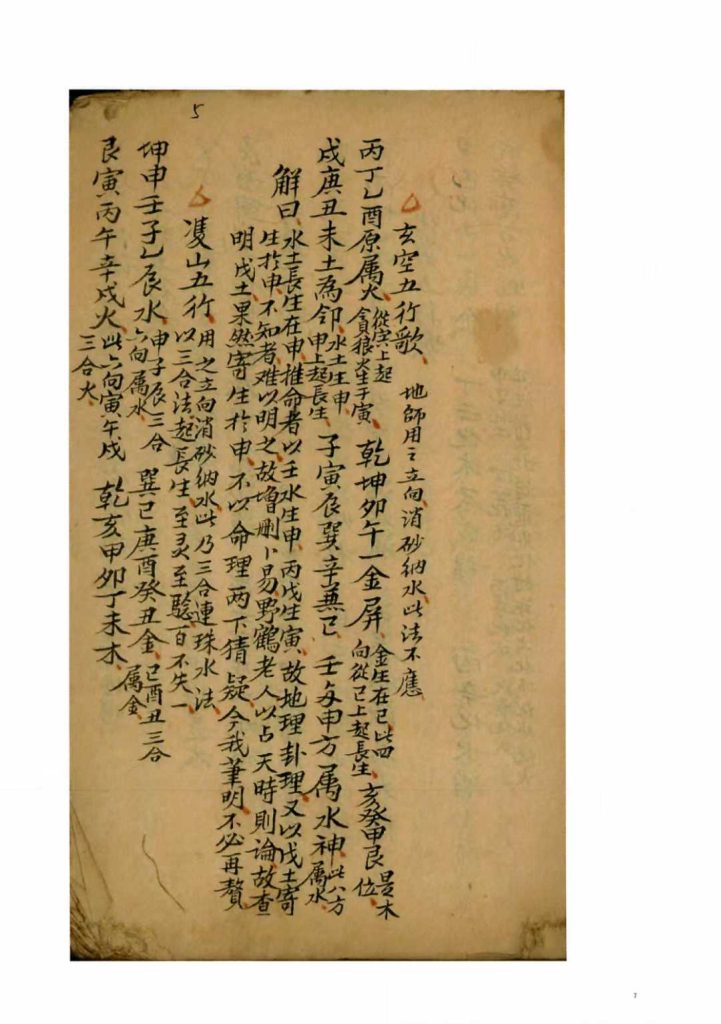 5
△玄空五行歌、地師用之立向消砂納水此法不應
丙丁乙酉原属火、從寅上起貪狼火生于寅、乾坤卯午一金屏、金生在巳此四向從巳上起長生、亥癸甲艮是木位、
戌庚丑未土為邻、水土生申申上起長生、子寅辰巽辛兼巳、壬与申方属水神、此八方属水、
解曰、水土長生在申、推命者以壬水生申、丙戊生寅、故地理卦理、又以戊土寄
生於申、不知者难以明之、故增删卜易野鶴老人以占天時則論、故查
明戊土果然寄生於申、不以命理兩下猜疑、今我筆明、不必再贅、
△䨇山五行、用之立向消砂納水、此乃三合連珠水法
以三合法起長生、至灵至驗、百不失一
坤申壬子乙辰水、申子辰三合六向属水、巽巳庚酉癸丑金、巳酉丑三合属金
艮寅丙午辛戌火、此六向寅午戌三合火、乾亥甲卯丁未木、
7